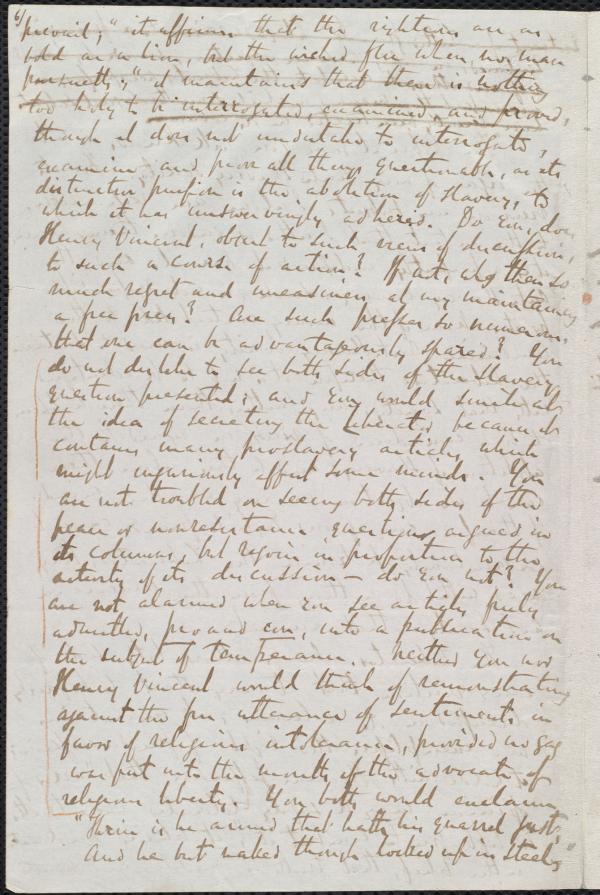 6/
prevail;" it affirms that the righteous are as
bold as a lion, but the wicked flee when no man
pursueth;" it maintains that there is nothing
too holy to be interrogated, examined, and proved,
though it does not undertake to interrogate,
examine and prove all things questionable, as its
distinctive purpose is the abolition of slavery, to
which it has unswervingly adhered. Do you, does
Henry Vincent, object to such views of discussion,
to such a course of action? If not, why then so
much regret and uneasiness at my maintaining
a free press? Are such presses so numerous
that one can be advantageously spared? You
do not dislike to see both sides of the slavery
question presented; and you would smile at
the idea of secreting the Liberator because it
contains many proslavery articles, which
might injuriously affect some minds. You
are not troubled on seeing both sides of the
peace or nonresistance question, argued in
its columns, but rejoice in proportion to the
activity of its discussion — do you not? You
are not alarmed when you see articles freely
admitted, pro and con, into a publication on
the subject of temperance. Neither you nor
Henry Vincent would think of remonstrating
against the free utterance of sentiments in
favor of religious intolerance, provided no gag
was put into the mouth of the advocate of
religious liberty. You both would exclaim,
"Thrice is he armed that hath his quarrel just,
And he but naked though locked up in steel,"